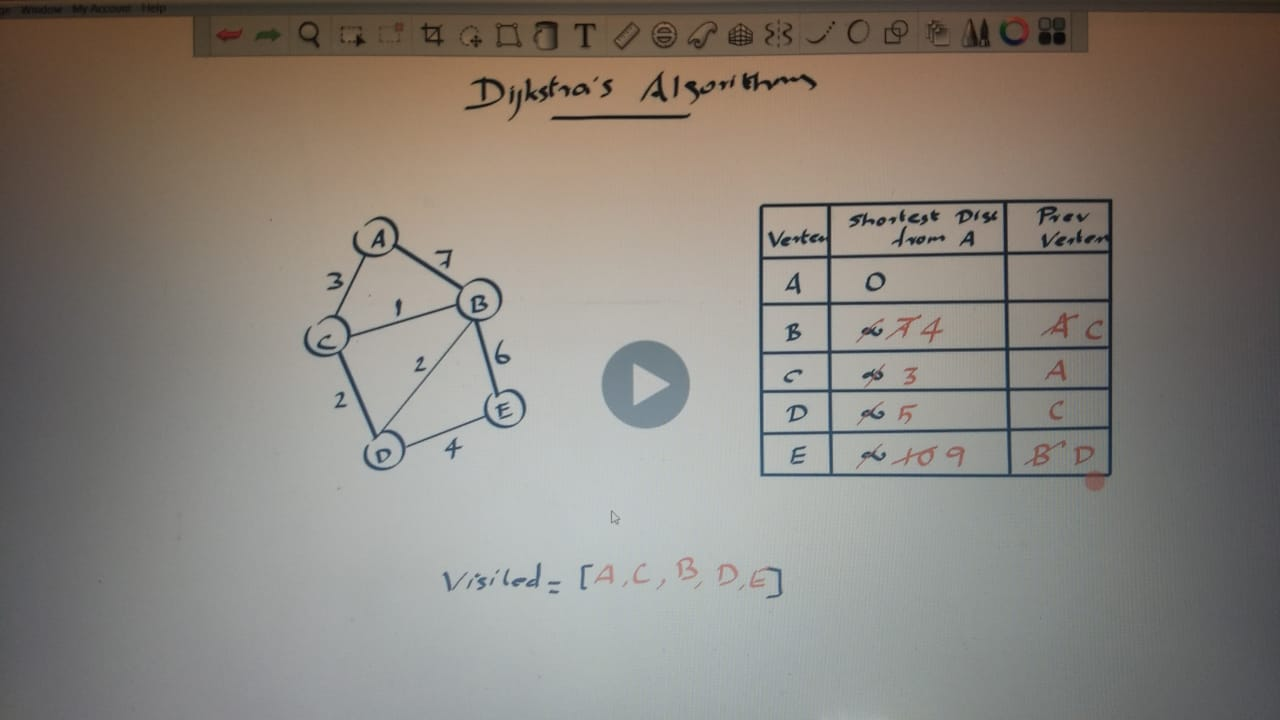 Window My Account Help
T
Dijkstra's Algorithm
A
7
3
1
B
C
2
6
2
E
D
4
Vertex Shortest Dist from A Prev Vertex
A 0
B ∞ 7 4 A C
C ∞ 3 A
D ∞ 5 C
E ∞ 10 9 B D
Visited = [A, C, B, D, E]